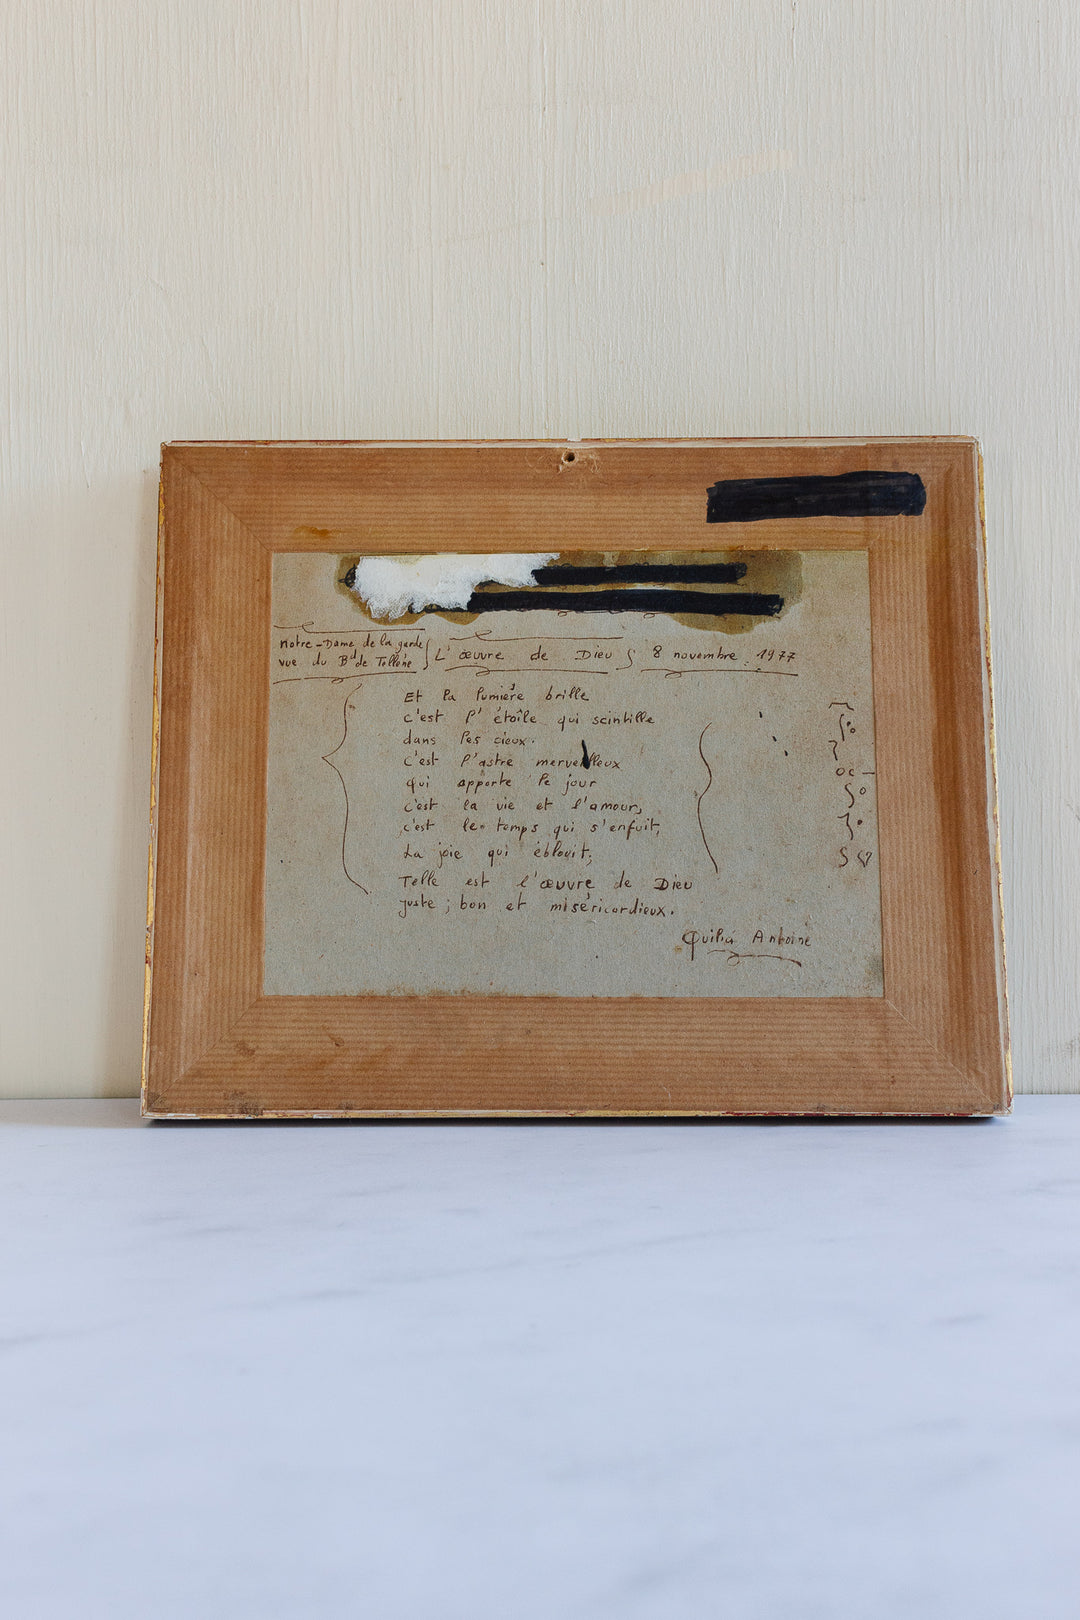 Notre-Dame de la garde
vue du Bd de Tellene
L'œuvre de Dieu
8 novembre 1977
Et la lumière brille
c'est l'étoîle qui scintille
dans les cieux.
c'est l'astre merveilleux
qui apporte le jour
c'est la vie et l'amour,
c'est le temps qui s'enfuit,
La joie qui éblouit;
Telle est l'œuvre de Dieu
juste; bon et miséricordieux.
Antoine